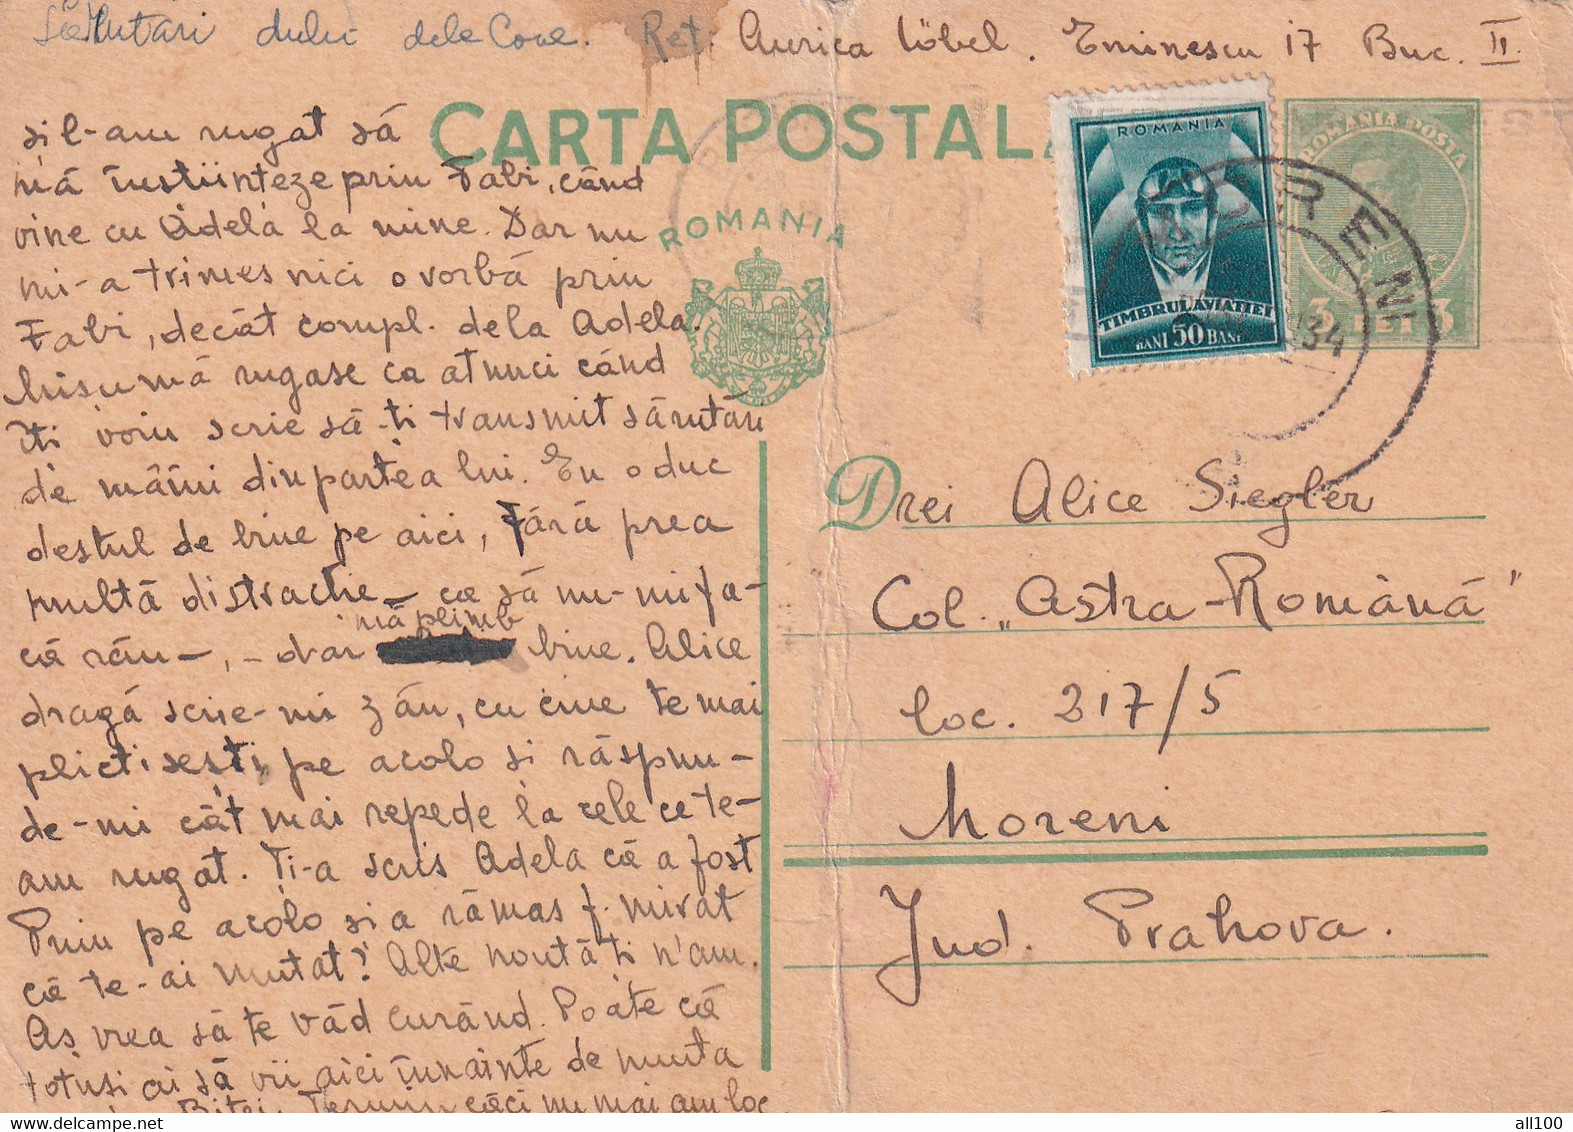 Sărutări dului dela Cone. Ret. Aurica Löbel. Eminescu 17 Buc. II.
CARTA POSTALA
ROMANIA
ROMANIA
TIMBRUL AVIATIEI
BANI 50 BANI
ROMANIA POSTA
3 LEI 3
MORENI
34
și l-am rugat să
mă înstiințeze prin Fabi, când
vine cu Adela la mine. Dar nu
mi-a trimes nici o vorbă prin
Fabi, decât compl. dela Adela.
Misu mă rugase ca atunci când
îți voiu scrie să-ti transmit sărutări
de mâini din partea lui. Eu o duc
destul de bine pe aici, fără prea
multă distractie – ca să nu-mi fa-
că rău –, – dar mă plimb bine. Alice
dragă scrie-mi zău, cu cine te mai
plictisești pe acolo si răspun-
de-mi cât mai repede la cele ce te-
am rugat. Ti-a scris Adela că a fost
Puiu pe acolo si a rămas f. mirat
că te-ai mutat? Alte noutăti n'am.
Aș vrea să te văd curând. Poate că
totusi ai să vii aici înnainte de nunta
Bitei. Termin căci nu mai am loc
Drei Alice Siegler
Col. „Astra-Română"
loc. 317/5
Moreni
Jud. Prahova.
all100